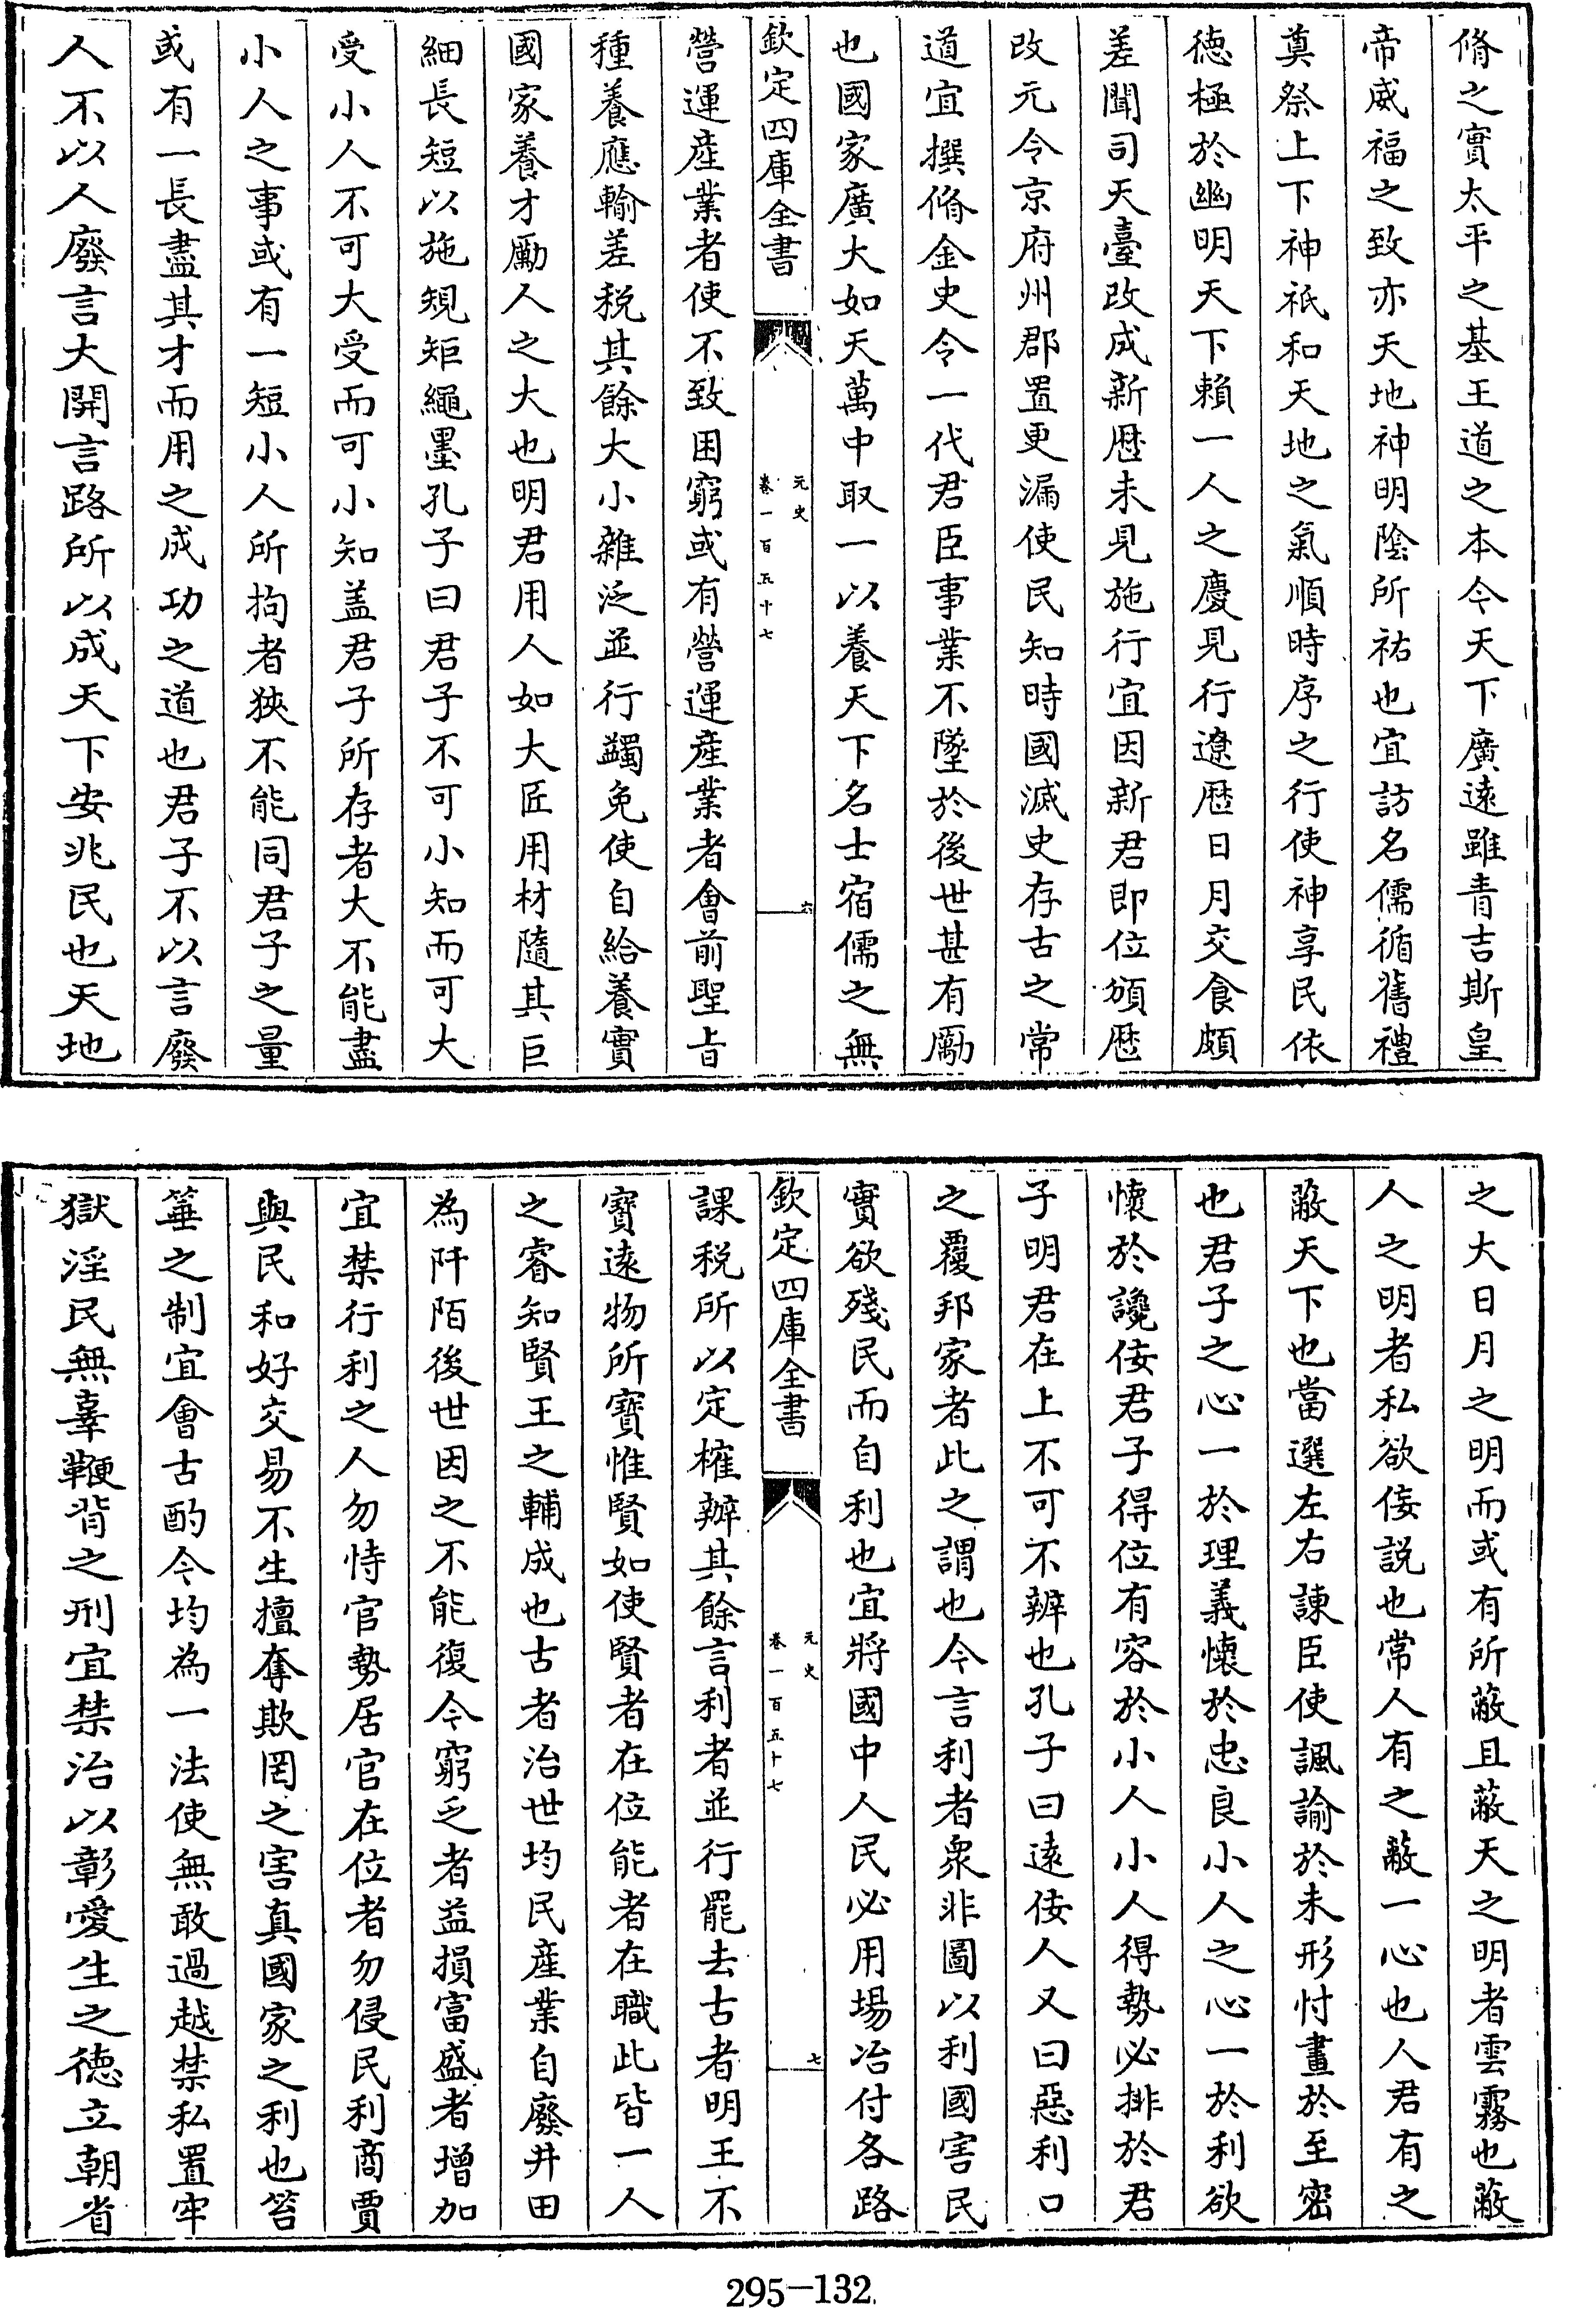 脩之實太平之基王道之本今天下廣遠雖青吉斯皇
帝威福之致亦天地神明陰所祐也宜訪名儒循舊禮
奠祭上下神祇和天地之氣順時序之行使神享民依
德極於幽明天下賴一人之慶見行遼歴日月交食頗
差聞司天臺改成新歴未見施行宜因新君即位頒歴
改元令京府州郡置更漏使民知時國滅史存古之常
道宜撰脩金史令一代君臣事業不墜於後世甚有勵
也國家廣大如天萬中取一以養天下名士宿儒之無
欽定四庫全書
元史
卷一百五十七
六
營運産業者使不致困窮或有營運産業者會前聖旨
種養應輸差税其餘大小雜泛並行蠲免使自給養實
國家養才勵人之大也明君用人如大匠用材隨其巨
細長短以施規矩繩墨孔子曰君子不可小知而可大
受小人不可大受而可小知盖君子所存者大不能盡
小人之事或有一短小人所拘者狹不能同君子之量
或有一長盡其才而用之成功之道也君子不以言廢
人不以人廢言大開言路所以成天下安兆民也天地
之大日月之明而或有所蔽且蔽天之明者雲霧也蔽
人之明者私欲佞説也常人有之蔽一心也人君有之
蔽天下也當選左右諫臣使諷諭於未形忖畫於至密
也君子之心一於理義懷於忠良小人之心一於利欲
懷於讒佞君子得位有容於小人小人得勢必排於君
子明君在上不可不辨也孔子曰遠佞人又曰惡利口
之覆邦家者此之謂也今言利者衆非圖以利國害民
實欲殘民而自利也宜將國中人民必用場冶付各路
欽定四庫全書
元史
卷一百五十七
七
課税所以定榷辦其餘言利者並行罷去古者明王不
寳遠物所寳惟賢如使賢者在位能者在職此皆一人
之睿知賢王之輔成也古者治世均民産業自廢井田
為阡陌後世因之不能復今窮乏者益損富盛者增加
宜禁行利之人勿恃官勢居官在位者勿侵民利商賈
與民和好交易不生擅奪欺罔之害真國家之利也笞
箠之制宜會古酌今均為一法使無敢過越禁私置牢
獄淫民無辜鞭背之刑宜禁治以彰愛生之德立朝省
295—132